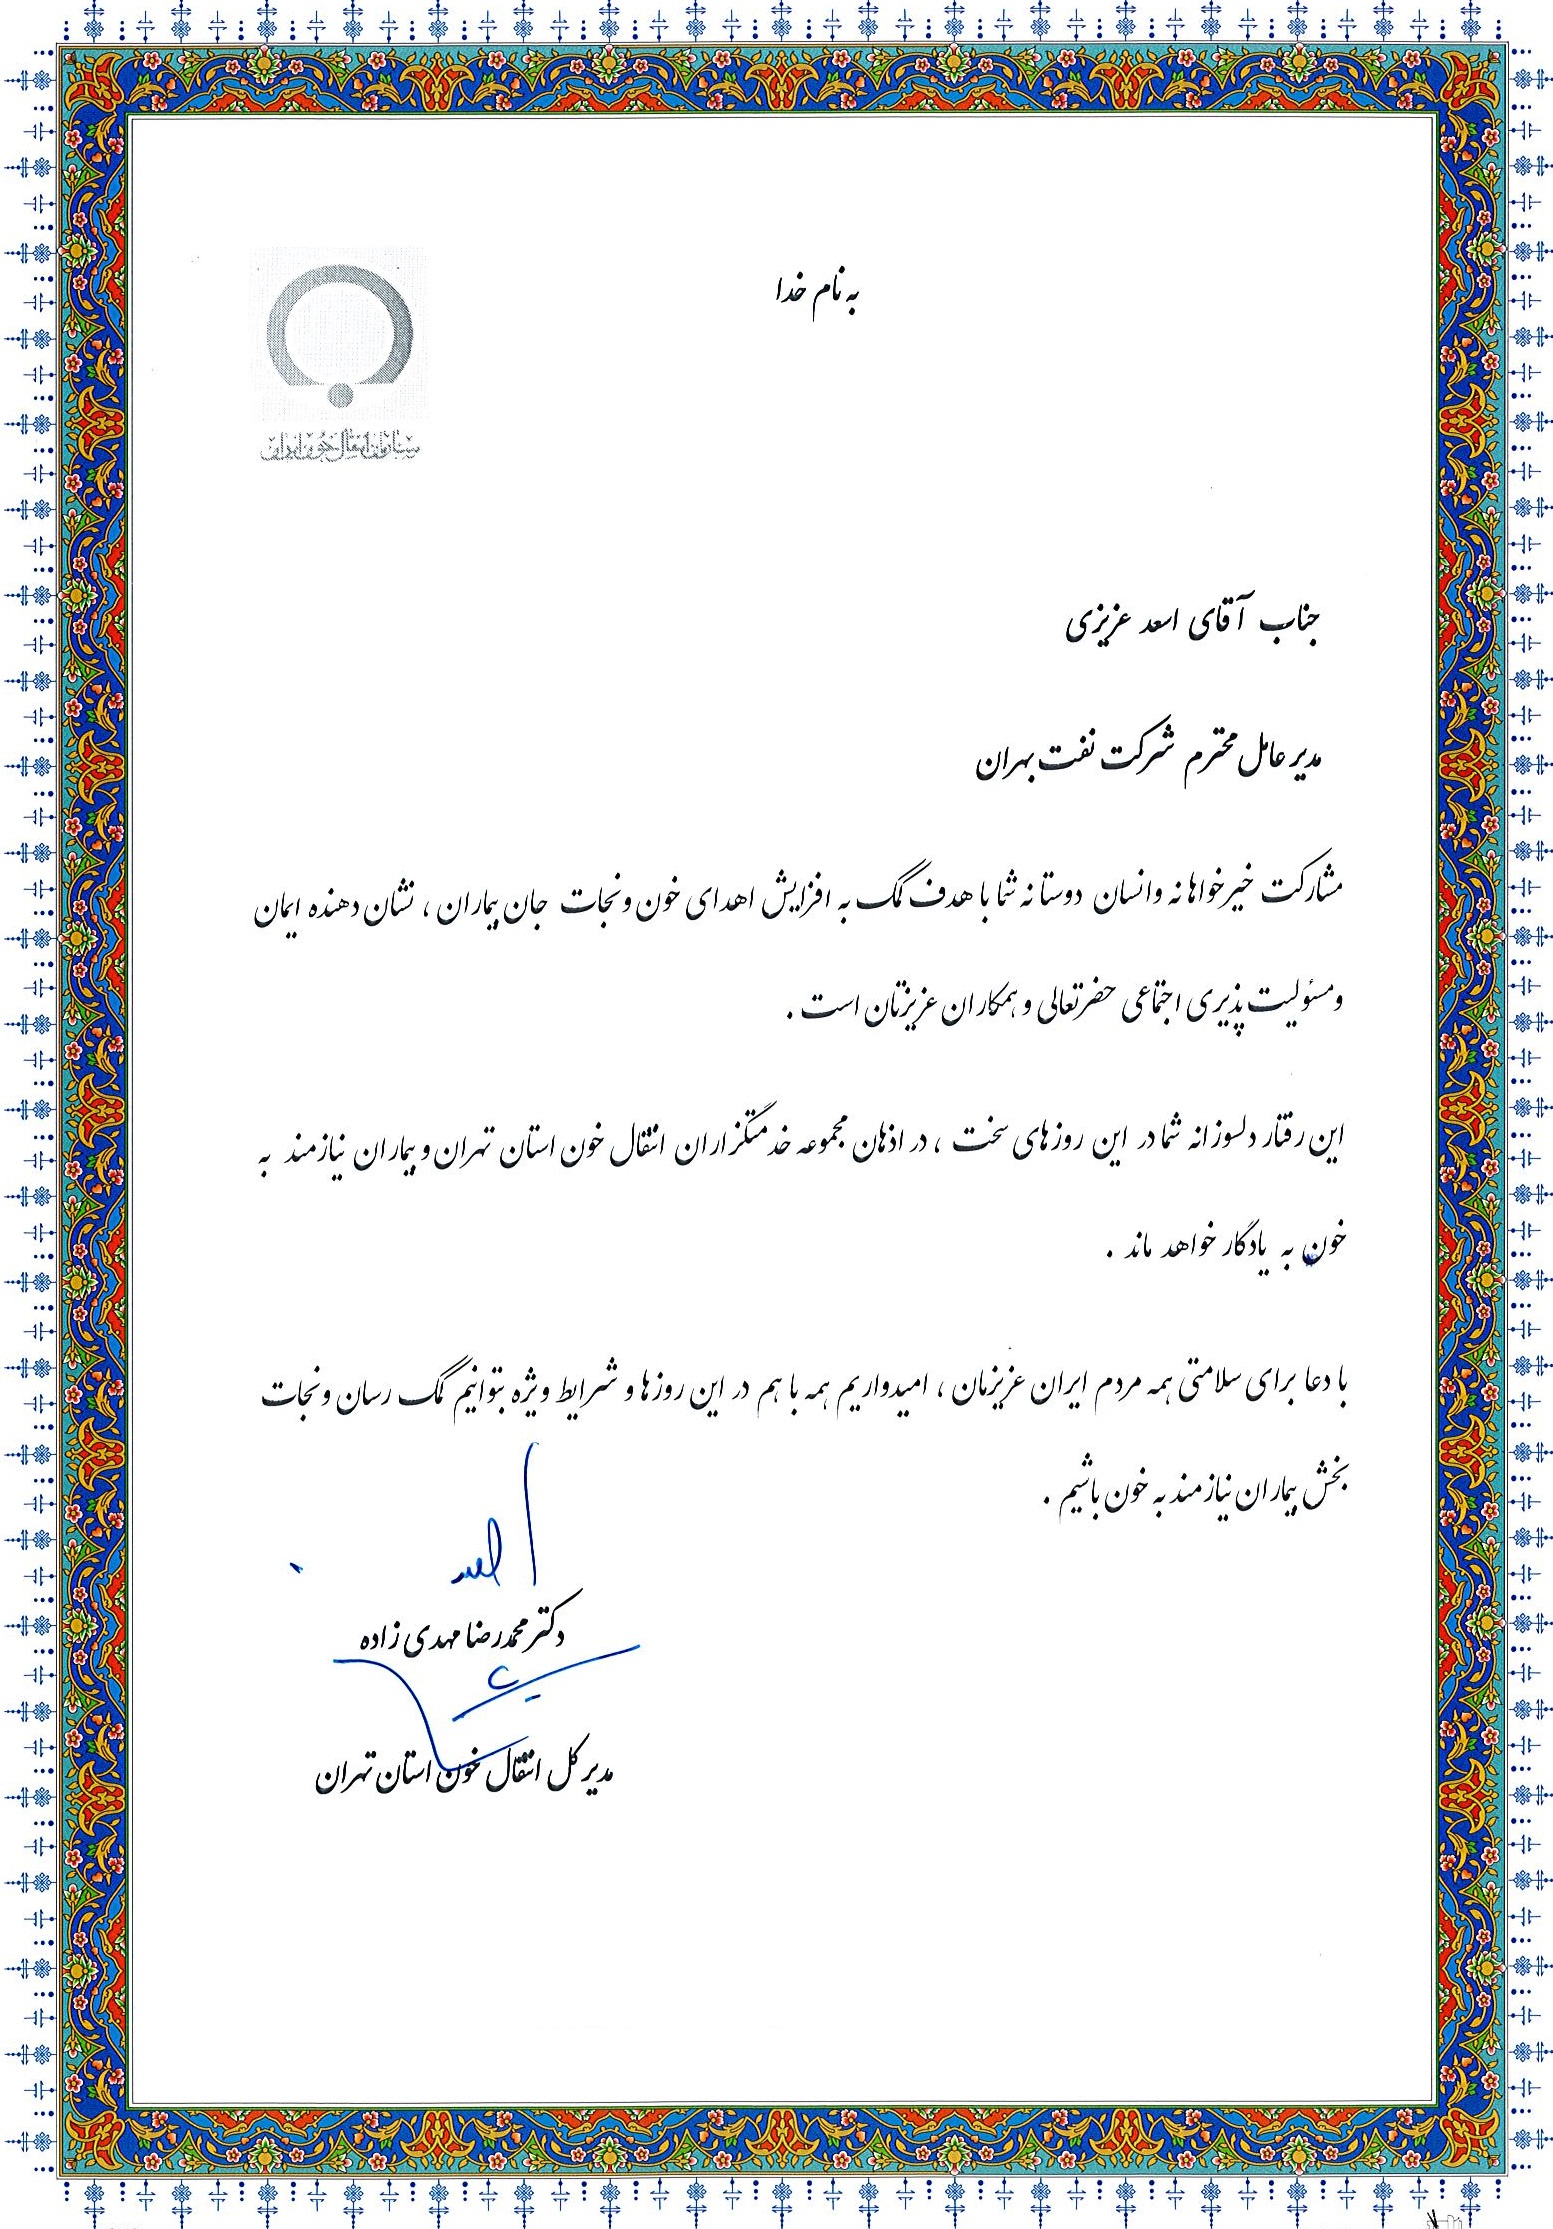 به نام خدا
سازمان انتقال خون ایران
جناب آقای اسعد عزیزی
مدیر عامل محترم شرکت نفت بهران
مشارکت خیرخواهانه و انسان دوستانه شما با هدف کمک به افزایش اهدای خون و نجات جان بیماران ، نشان دهنده ایمان
و مسئولیت پذیری اجتماعی حضرتعالی و همکاران عزیزتان است .
این رفتار دلسوزانه شما در این روزهای سخت ، در اذهان مجموعه خدمتگزاران انتقال خون استان تهران و بیماران نیازمند به
خون به یادگار خواهد ماند .
با دعا برای سلامتی همه مردم ایران عزیزمان ، امیدواریم همه با هم در این روزها و شرایط ویژه بتوانیم کمک رسان و نجات
بخش بیماران نیازمند به خون باشیم .
دکتر محمدرضا مهدی زاده
مدیر کل انتقال خون استان تهران